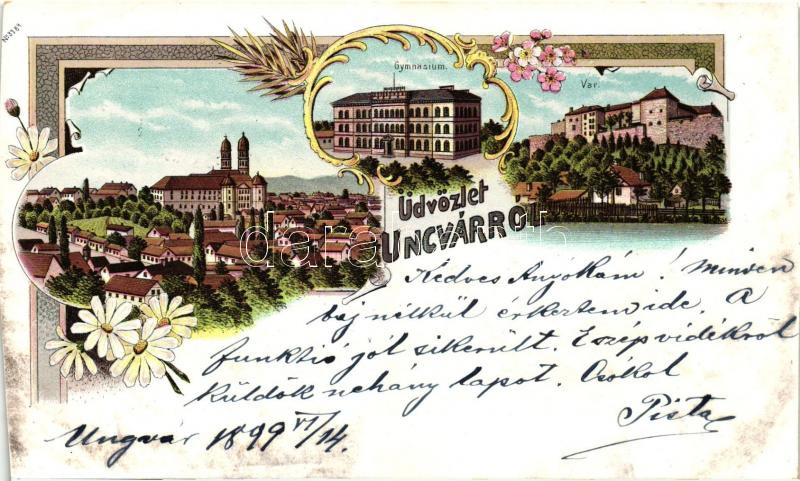 No 3384
Gymnasium.
Vár.
Üdvözlet
UNGVÁRRÓL
darabanth
Kedves Anyókám! Minden
baj nélkül érkeztem ide. A
funktió jól sikerült. E szép vidékről
küldök nehány lapot. Csókol
Pista
Ungvár 1899 VI/14.